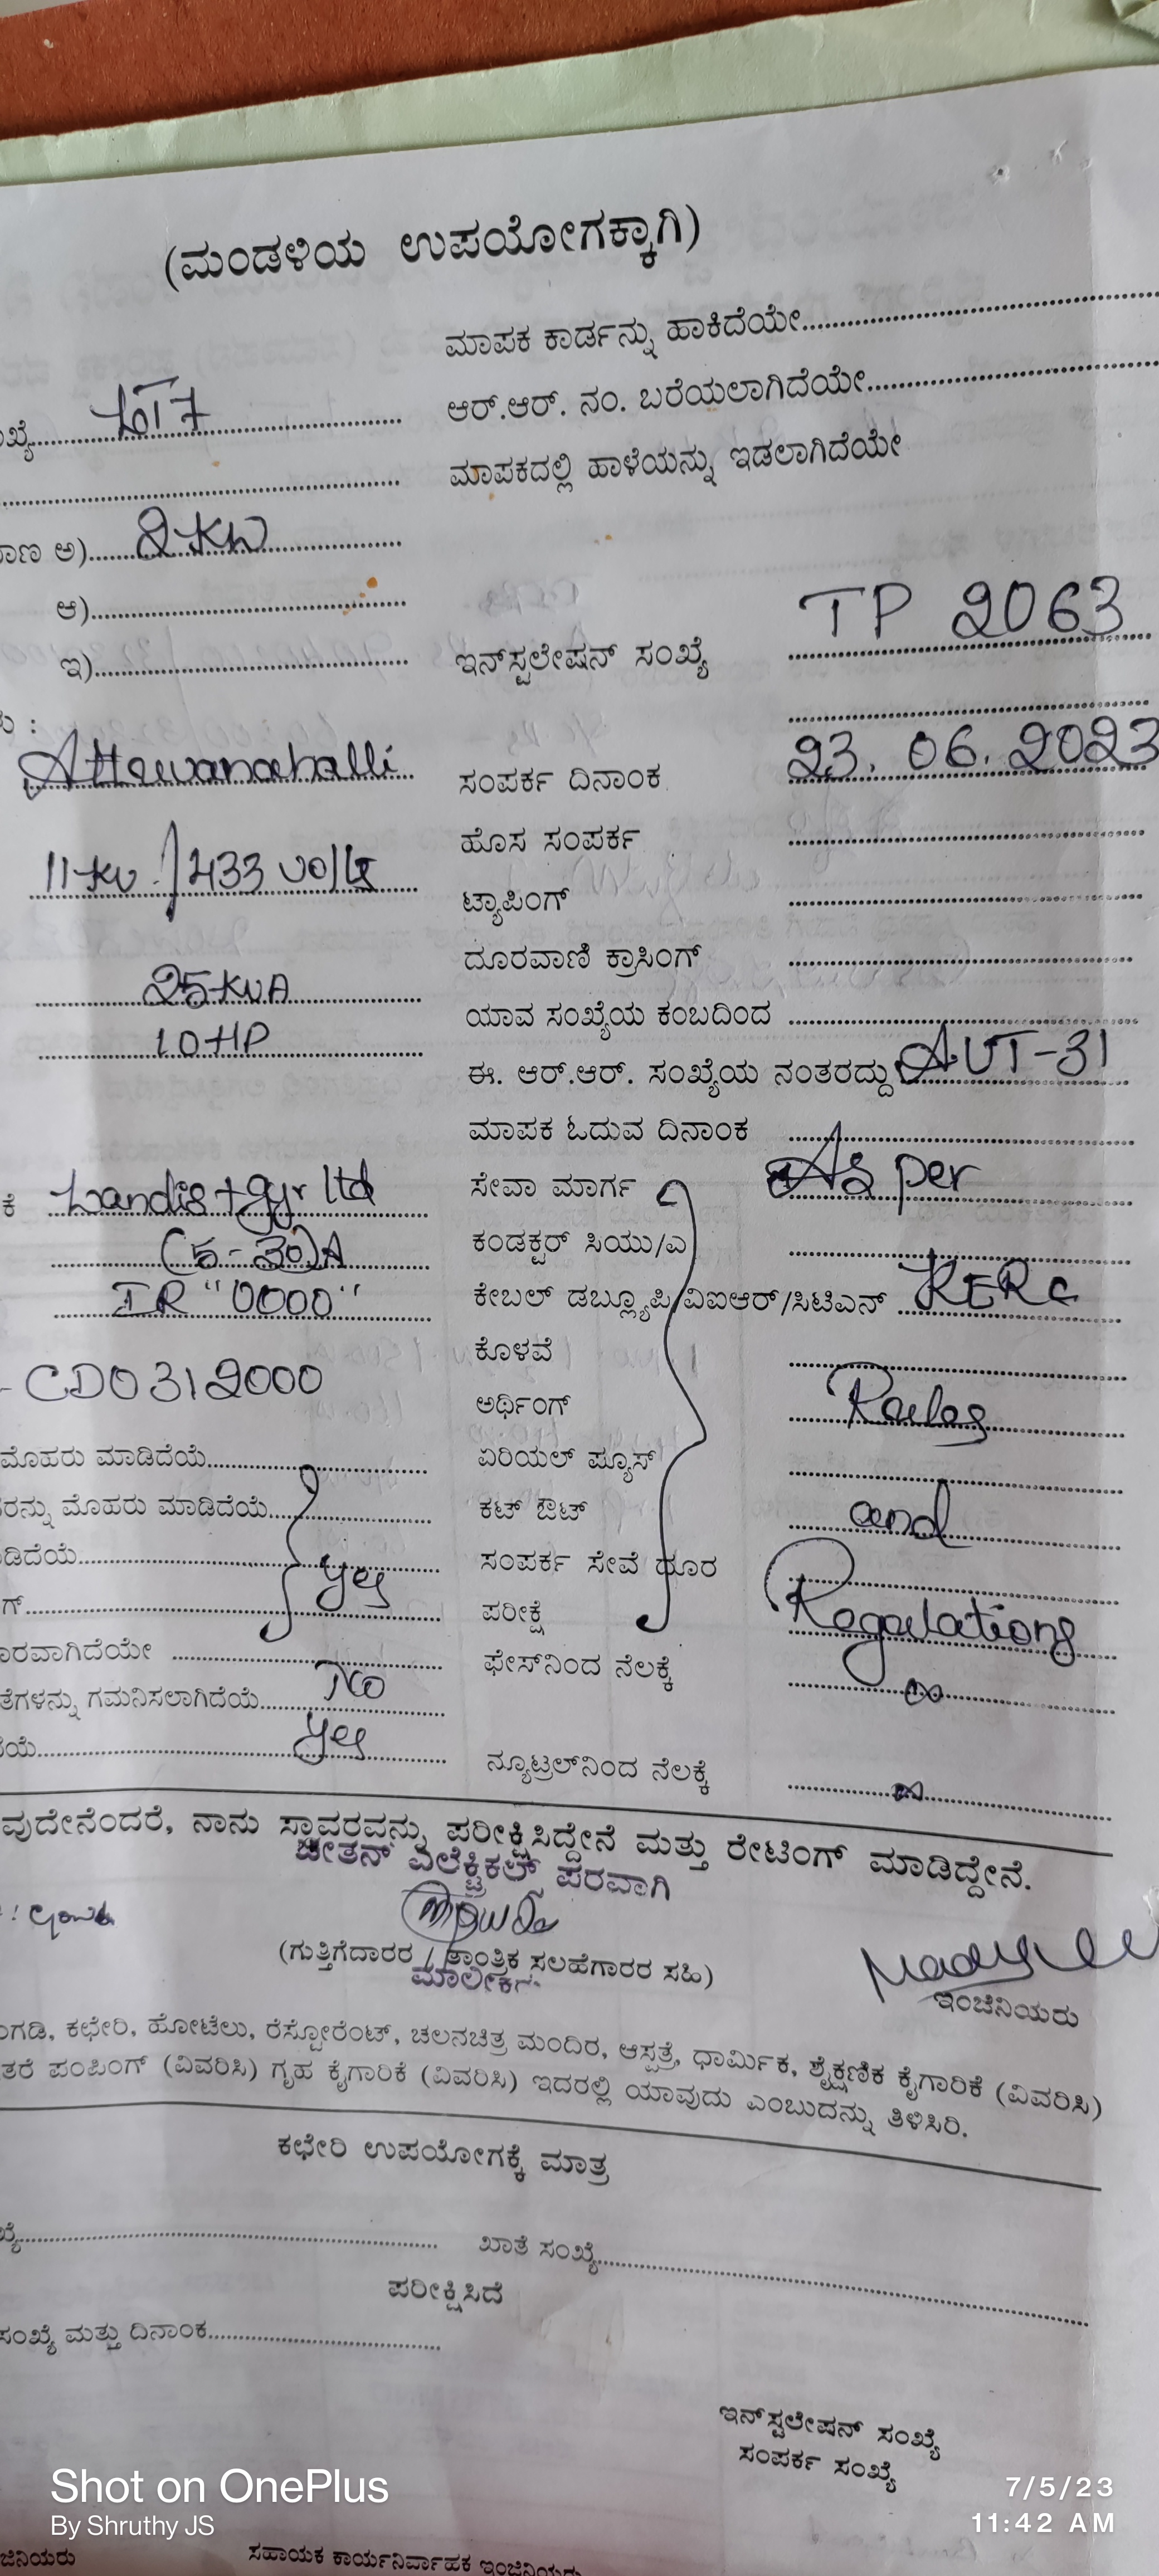 (ಮಂಡಳಿಯ ಉಪಯೋಗಕ್ಕಾಗಿ)
ಮಾಪಕ ಕಾರ್ಡನ್ನು ಹಾಕಿದೆಯೇ
ಆರ್.ಆರ್. ನಂ. ಬರೆಯಲಾಗಿದೆಯೇ
ಮಾಪಕದಲ್ಲಿ ಹಾಳೆಯನ್ನು ಇಡಲಾಗಿದೆಯೇ
ಅ) 2 KW
ಆ)
ಇ)
ಇನ್‌ಸ್ಟಲೇಷನ್ ಸಂಖ್ಯೆ TP 2063
ಸಂಪರ್ಕ ದಿನಾಂಕ 23.06.2023
ಹೊಸ ಸಂಪರ್ಕ
11 KV / 433 volts
ಟ್ಯಾಪಿಂಗ್
ದೂರವಾಣಿ ಕ್ರಾಸಿಂಗ್
25 KVA
ಯಾವ ಸಂಖ್ಯೆಯ ಕಂಬದಿಂದ
10 HP
ಈ. ಆರ್.ಆರ್. ಸಂಖ್ಯೆಯ ನಂತರದ್ದು AUT-31
ಮಾಪಕ ಓದುವ ದಿನಾಂಕ
ಕೆ Landis + gyr ltd
ಸೇವಾ ಮಾರ್ಗ As per
(5-30)A
ಕಂಡಕ್ಟರ್ ಸಿಯು/ಎ
IR "0000"
ಕೇಬಲ್ ಡಬ್ಲ್ಯೂಪಿ/ವಿಐಆರ್/ಸಿಟಿಎನ್ KERC
ಕೊಳವೆ
- CD0312000
ಅರ್ಥಿಂಗ್ Rules
ಮೊಹರು ಮಾಡಿದೆಯೆ
ಏರಿಯಲ್ ಫ್ಯೂಸ್
ರನ್ನು ಮೊಹರು ಮಾಡಿದೆಯೆ
ಕಟ್ ಔಟ್ and
ಡಿದೆಯೆ yes
ಸಂಪರ್ಕ ಸೇವೆ ದೂರ
ಗ್
ಪರೀಕ್ಷೆ Regulations
ಾರವಾಗಿದೆಯೇ
ಫೇಸ್‌ನಿಂದ ನೆಲಕ್ಕೆ ∞
ತೆಗಳನ್ನು ಗಮನಿಸಲಾಗಿದೆಯೆ No
ಯೆ yes
ನ್ಯೂಟ್ರಲ್‌ನಿಂದ ನೆಲಕ್ಕೆ ∞
ವುದೇನೆಂದರೆ, ನಾನು ಸ್ಥಾವರವನ್ನು ಪರೀಕ್ಷಿಸಿದ್ದೇನೆ ಮತ್ತು ರೇಟಿಂಗ್ ಮಾಡಿದ್ದೇನೆ.
ಚೇತನ್ ಎಲೆಕ್ಟ್ರಿಕಲ್ಸ್ ಪರವಾಗಿ
(ಗುತ್ತಿಗೆದಾರರ / ತಾಂತ್ರಿಕ ಸಲಹೆಗಾರರ ಸಹಿ)
ಮಾಲೀಕರು
ಇಂಜಿನಿಯರು
ಂಗಡಿ, ಕಛೇರಿ, ಹೋಟೆಲು, ರೆಸ್ಟೋರೆಂಟ್, ಚಲನಚಿತ್ರ ಮಂದಿರ, ಆಸ್ಪತ್ರೆ, ಧಾರ್ಮಿಕ, ಶೈಕ್ಷಣಿಕ ಕೈಗಾರಿಕೆ (ವಿವರಿಸಿ)
ತರೆ ಪಂಪಿಂಗ್ (ವಿವರಿಸಿ) ಗೃಹ ಕೈಗಾರಿಕೆ (ವಿವರಿಸಿ) ಇದರಲ್ಲಿ ಯಾವುದು ಎಂಬುದನ್ನು ತಿಳಿಸಿರಿ.
ಕಛೇರಿ ಉಪಯೋಗಕ್ಕೆ ಮಾತ್ರ
ಖಾತೆ ಸಂಖ್ಯೆ
ಪರೀಕ್ಷಿಸಿದೆ
ಸಂಖ್ಯೆ ಮತ್ತು ದಿನಾಂಕ
ಇನ್‌ಸ್ಟಲೇಷನ್ ಸಂಖ್ಯೆ
ಸಂಪರ್ಕ ಸಂಖ್ಯೆ
Shot on OnePlus
By Shruthy JS
7/5/23
11:42 AM
ಜಿನಿಯರು
ಸಹಾಯಕ ಕಾರ್ಯನಿರ್ವಾಹಕ ಇಂಜಿನಿಯರು